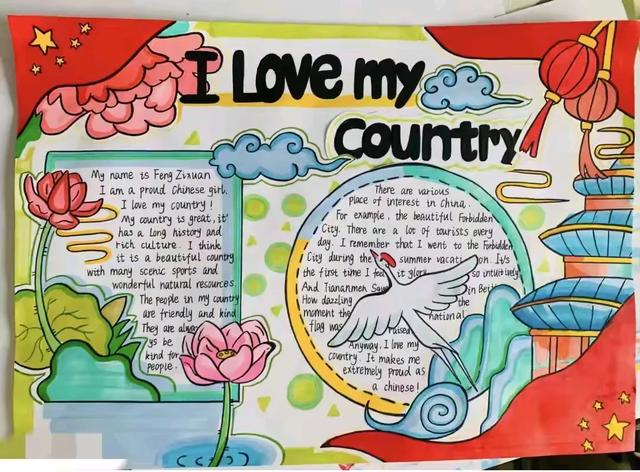 I Love my
Country
My name is Feng Zixuan
I am a proud Chinese girl.
I love my country!
My country is great, it'
has a long history and
rich culture. I think
it is a beautiful country
with many scenic sports and
wonderful natural resources.
The people in my country
are friendly and kind
They are alwa
ys be
kind for
people.
There are various
place of interest in China.
For example, the beautiful Forbidden
City. There are a lot of tourists every
day. I remember that I went to the Forbidden
City during the summer vacation. It's
the first time I feel it glory so intuitively
And Tiananmen Squ in Bei
How dazzling the
moment the national
flag was raised
Anyway, I love my
country. It makes me
extremely proud as
a chinese!